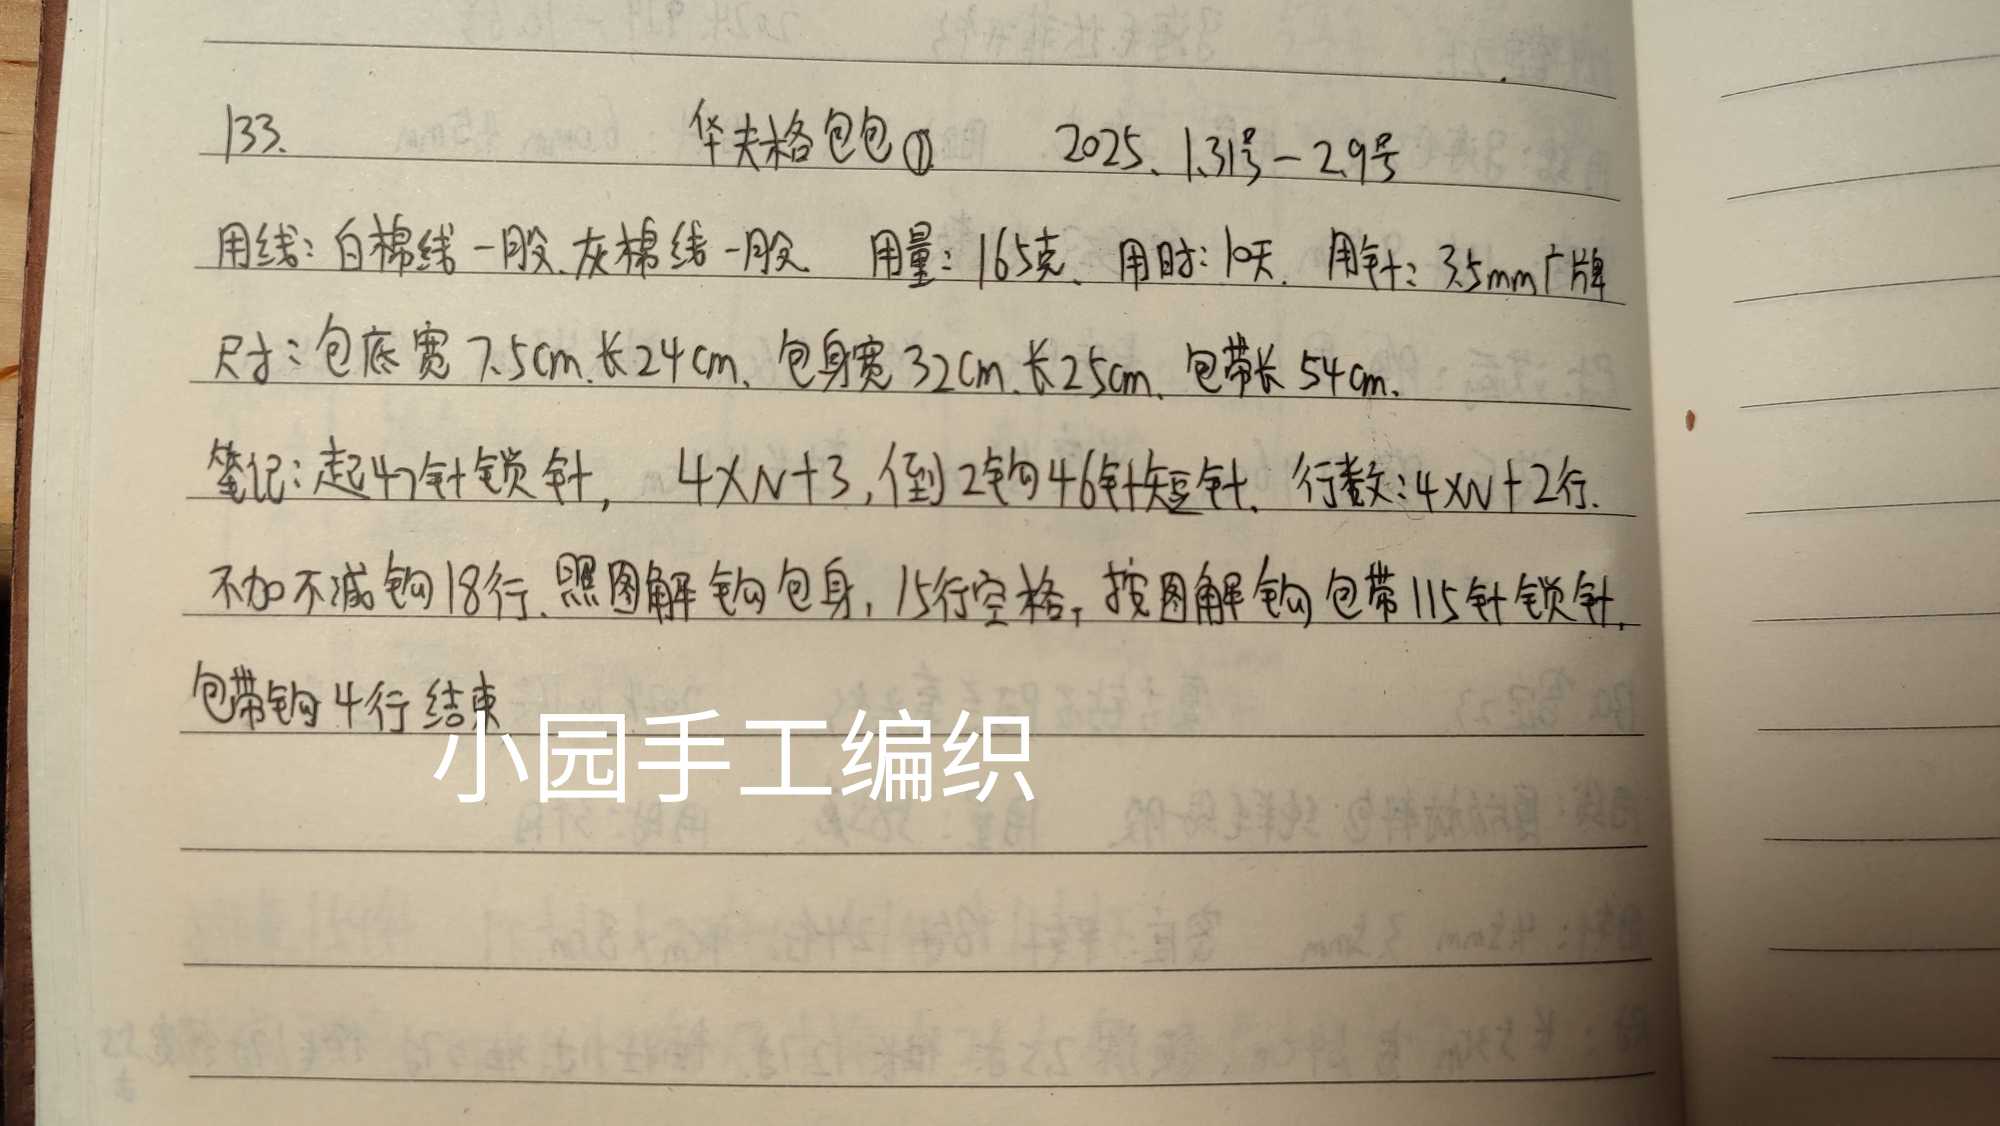 133. 华夫格包包① 2025、1.31号－2.9号
用线：白棉线一股、灰棉线一股、 用量：165克、 用时：10天. 用针：3.5mm广牌
尺寸：包底宽7.5cm、长24cm、包身宽32cm、长25cm、包带长54cm、
笔记：起47针锁针， 4×N+3，倒2钩46针短针. 行数：4×N+2行.
不加不减钩18行、照图解钩包身，15行空格，按图解钩包带115针锁针，
包带钩4行结束
小园手工编织